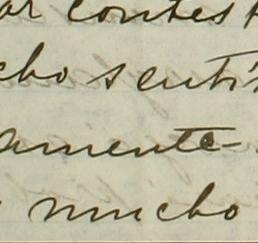 ar contest
cho senti
amente-
mucho